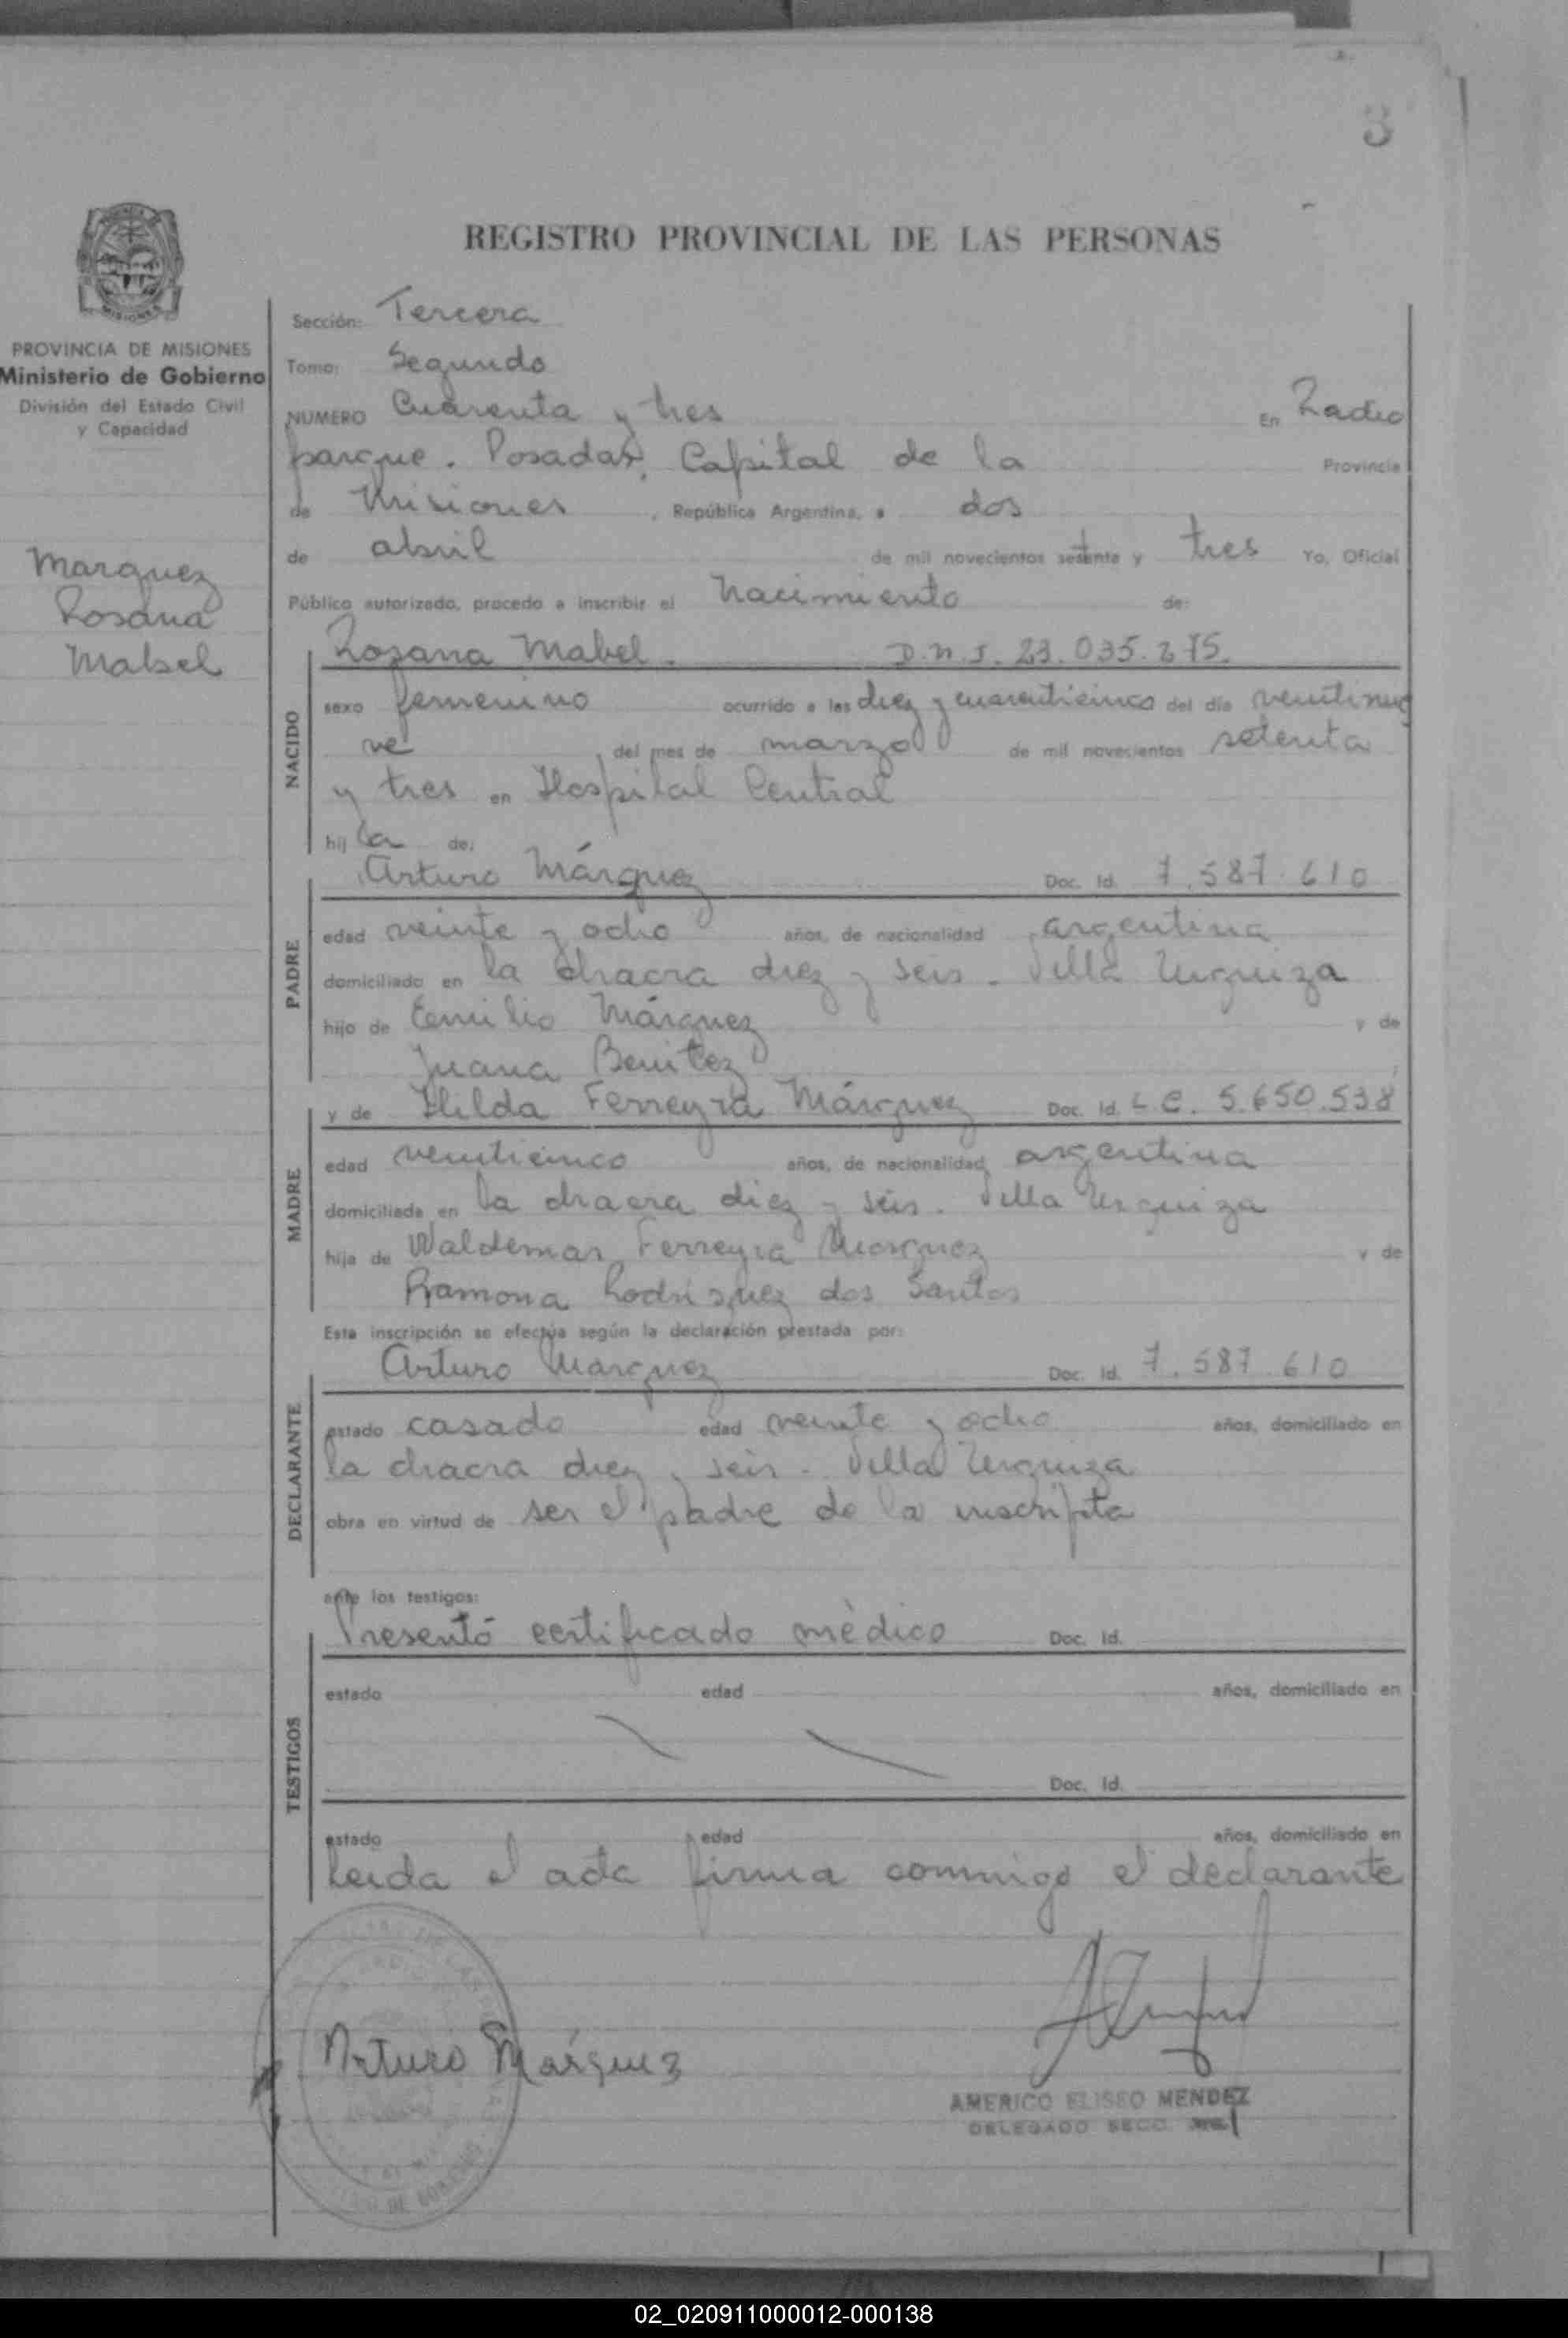 3
REGISTRO PROVINCIAL DE LAS PERSONAS
PROVINCIA DE MISIONES
Ministerio de Gobierno
División del Estado Civil
y Capacidad
Marquez
Rosana
Mabel
Sección: Tercera
Tomo: Segundo
NUMERO Cuarenta y tres En Zadio
parque. Posadas, Capital de la Provincia
de Misiones, República Argentina, a dos
de abril de mil novecientos setenta y tres Yo, Oficial
Público autorizado, procedo a inscribir el nacimiento de:
Rosana Mabel. D.N.I. 23.035.275.
NACIDO
sexo femenino ocurrido a las diez y cuarenticinco del día veintinue
ve del mes de marzo de mil novecientos setenta
y tres en Hospital Central
hij la de:
Arturo Márquez Doc. Id. 7.587.610
PADRE
edad veinte y ocho años, de nacionalidad argentina
domiciliado en la chacra diez y seis. Villa Urquiza
hijo de Emilio Márquez y de
Juana Benitez
y de Hilda Ferreyra Márquez Doc. Id. L.C. 5.650.538
MADRE
edad veinticinco años, de nacionalidad argentina
domiciliada en la chacra diez y seis. Villa Urquiza
hija de Waldemar Ferreyra Marquez y de
Ramona Rodriguez dos Santos
Esta inscripción se efectúa según la declaración prestada por:
Arturo Marquez Doc. Id. 7.587.610
DECLARANTE
estado casado edad veinte y ocho años, domiciliado en
la chacra diez y seis. Villa Urquiza
obra en virtud de ser el padre de la inscripta
ante los testigos:
Presentó certificado mèdico Doc. Id.
TESTIGOS
estado edad años, domiciliado en
Doc. Id.
estado edad años, domiciliado en
Leida el acta firma conmigo el declarante
Arturo Márquez
AMERICO ELISEO MENDEZ
DELEGADO SECC.
02_020911000012-000138